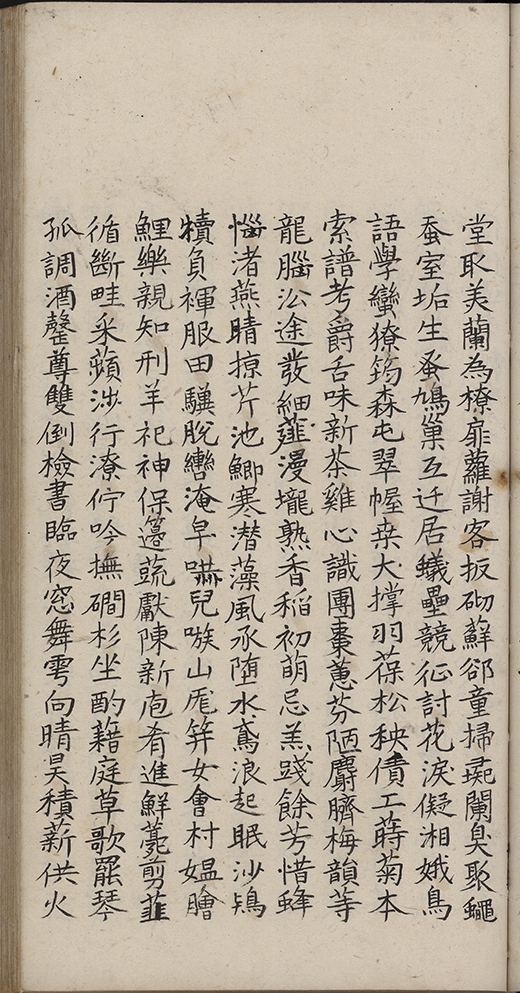 堂取美蘭為橑扉蘿謝客扳砌蘚郤童掃蕋闌臭聚蠅
蚕室垢生蚤鳩巢互迁居蟻壘競征討花淚儗湘娥鳥
語學蠻獠筠森屯翠幄桒大撑羽葆松秧債工蒔菊本
索譜考爵舌味新茶雞心識團棗蕙芬陋麝臍梅韻等
龍腦㳂途發細薤漫壠熟香稻初萌忌羔踐餘芳惜蜂
惱渚燕晴掠芹池鯽寒潜藻風承堕水鳶浪起眠沙鴇
犢負褌服田驥脫轡淹皁嚇兒嗾山尨筓女會村媼膾
鯉樂親知刑羊祀神保籩蔬獻陳新庖肴進鮮薧剪韮
循斷畦采蘋涉行潦佇吟撫磵杉坐酌藉庭草歌罷琴
孤調酒罄尊雙倒檢書臨夜窓舞雩向晴昊積薪供火